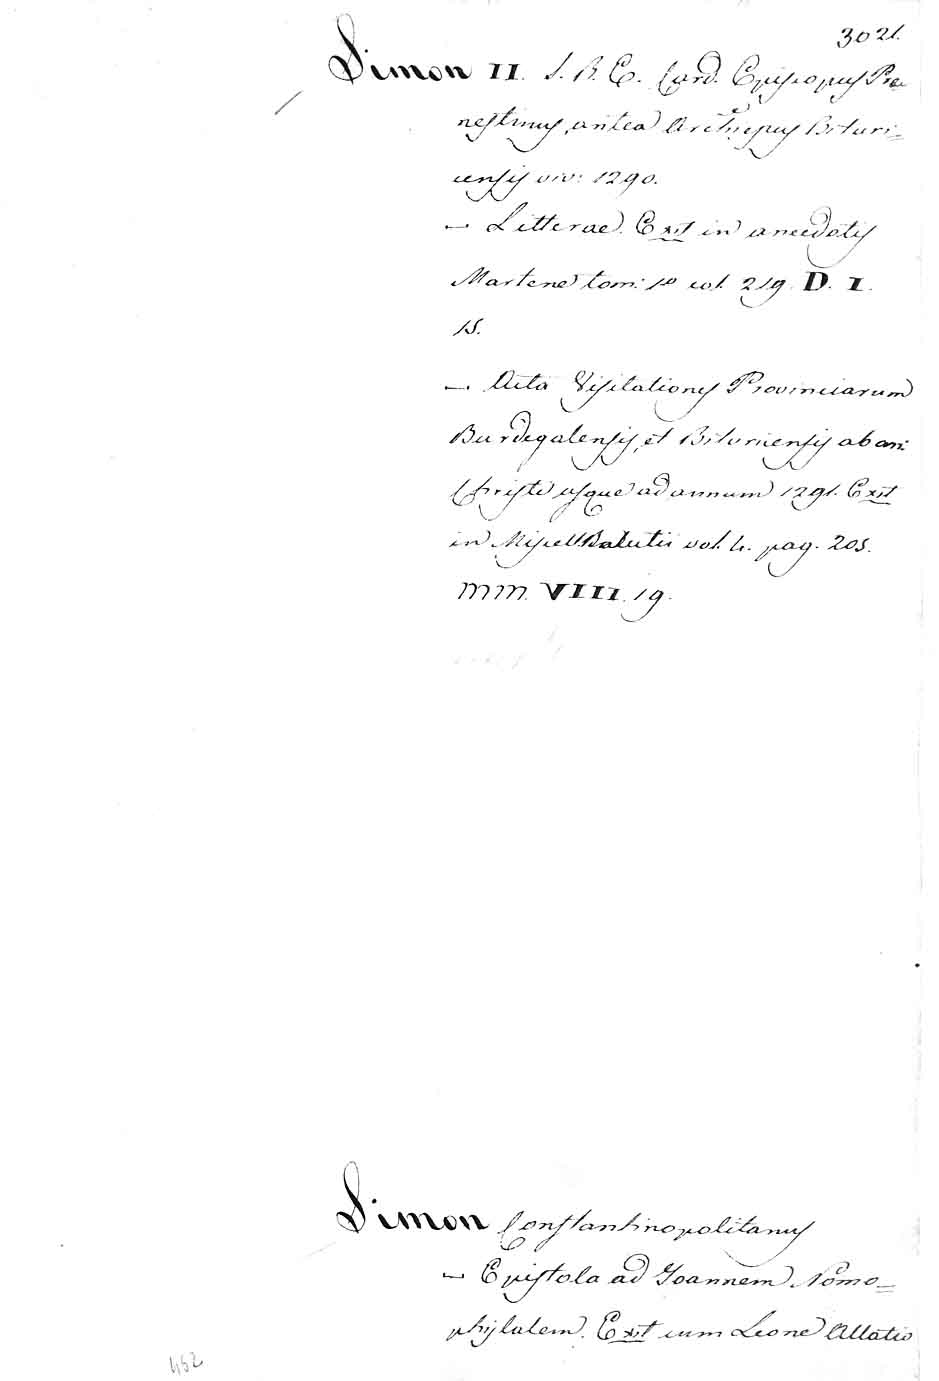 3021.
Simon II. S. R. E. Card. Episcopus Præ-
nestinus, antea Archiepus Bituri=
censis viv: 1290.
— Litterae. Exit in anecdotis
Martene tom: 1º col. 219. D. I.
15.
— Acta Visitationis Provinciarum
Burdegalensis, et Bituricensis ab an:
Christi usque ad annum 1291. Exit
in Miscell. Balutii vol. 4. pag. 205.
MM. VIII. 19.
Simon Constantinopolitanus
— Epistola ad Joannem Nomo=
phijlatem. Exit cum Leone Allatio
452